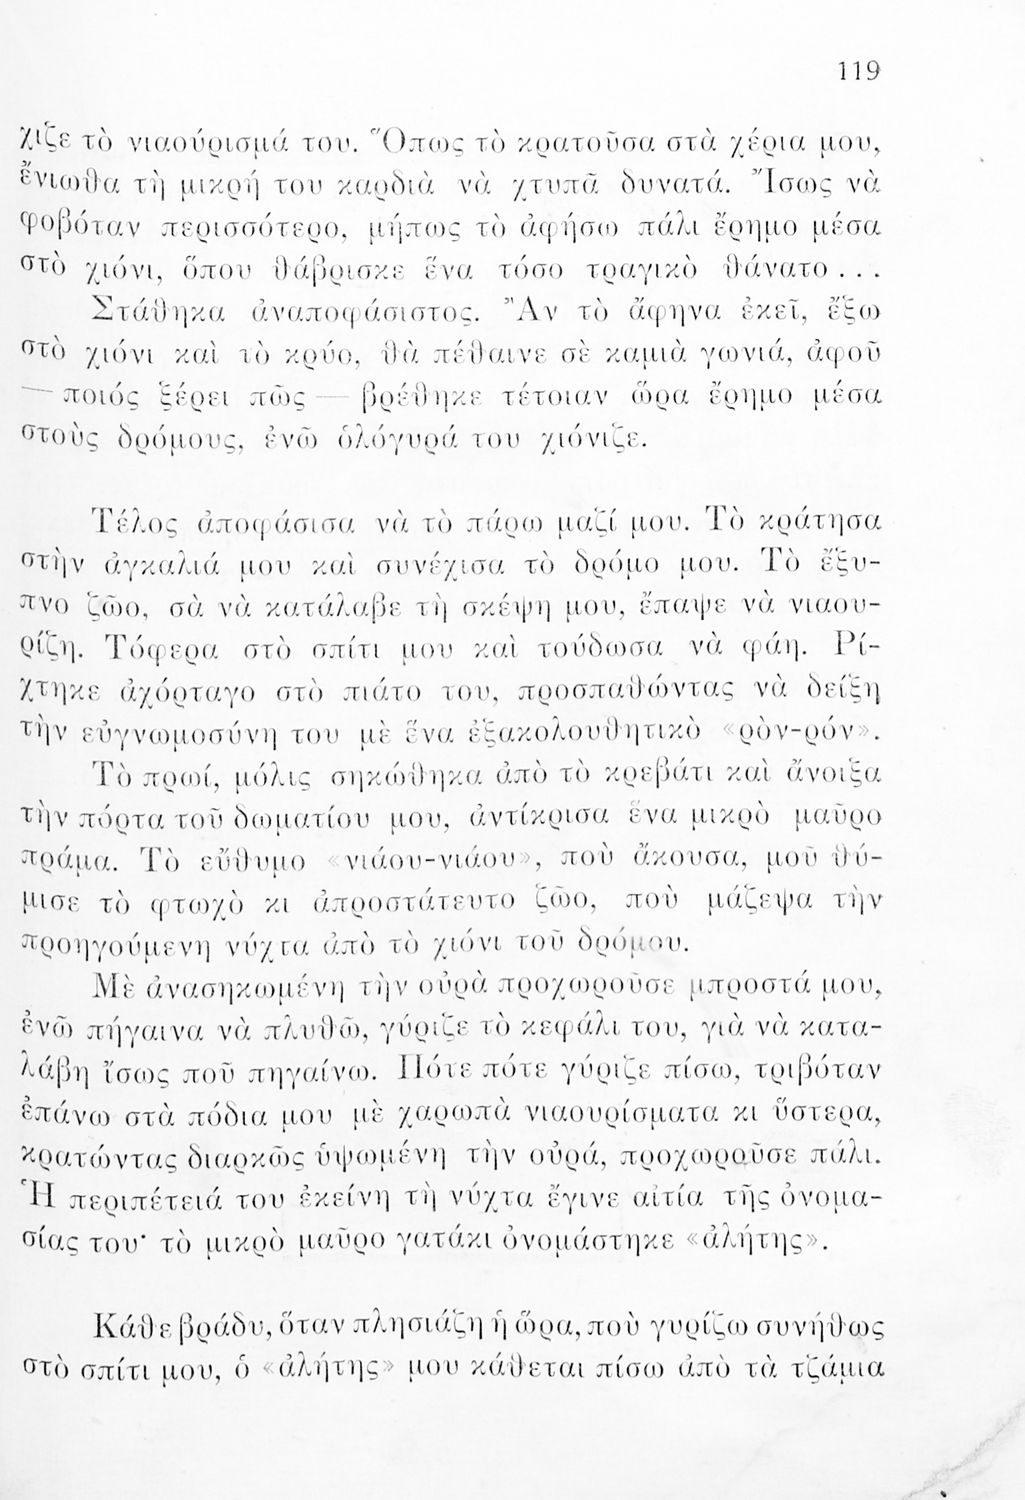 119
χιζε τὸ νιαούρισμά του. Ὅπως τὸ κρατοῦσα στὰ χέρια μου,
ἔνιωθα τὴ μικρή του καρδιὰ νὰ χτυπᾶ δυνατά. Ἴσως νὰ
φοβόταν περισσότερο, μήπως τὸ ἀφήσω πάλι ἔρημο μέσα
στὸ χιόνι, ὅπου θάβρισκε ἕνα τόσο τραγικὸ θάνατο . . .
Στάθηκα ἀναποφάσιστος. Ἂν τὸ ἄφηνα ἐκεῖ, ἔξω
στὸ χιόνι καὶ τὸ κρύο, θὰ πέθαινε σὲ καμιὰ γωνιά, ἀφοῦ
— ποιός ξέρει πῶς — βρέθηκε τέτοιαν ὥρα ἔρημο μέσα
στοὺς δρόμους, ἐνῶ ὁλόγυρά του χιόνιζε.
Τέλος ἀποφάσισα νὰ τὸ πάρω μαζί μου. Τὸ κράτησα
στὴν ἀγκαλιά μου καὶ συνέχισα τὸ δρόμο μου. Τὸ ἔξυ-
πνο ζῶο, σὰ νὰ κατάλαβε τὴ σκέψη μου, ἔπαψε νὰ νιαου-
ρίζη. Τόφερα στὸ σπίτι μου καὶ τούδωσα νὰ φάη. Ρί-
χτηκε ἀχόρταγο στὸ πιάτο του, προσπαθώντας νὰ δείξη
τὴν εὐγνωμοσύνη του μὲ ἕνα ἐξακολουθητικὸ «ρὸν-ρόν».
Τὸ πρωί, μόλις σηκώθηκα ἀπὸ τὸ κρεβάτι καὶ ἄνοιξα
τὴν πόρτα τοῦ δωματίου μου, ἀντίκρισα ἕνα μικρὸ μαῦρο
πράμα. Τὸ εὔθυμο «νιάου-νιάου», ποὺ ἄκουσα, μοῦ θύ-
μισε τὸ φτωχὸ κι ἀπροστάτευτο ζῶο, ποὺ μάζεψα τὴν
προηγούμενη νύχτα ἀπὸ τὸ χιόνι τοῦ δρόμου.
Μὲ ἀνασηκωμένη τὴν οὐρὰ προχωροῦσε μπροστά μου,
ἐνῶ πήγαινα νὰ πλυθῶ, γύριζε τὸ κεφάλι του, γιὰ νὰ κατα-
λάβη ἴσως ποῦ πηγαίνω. Πότε πότε γύριζε πίσω, τριβόταν
ἐπάνω στὰ πόδια μου μὲ χαρωπὰ νιαουρίσματα κι ὕστερα,
κρατώντας διαρκῶς ὑψωμένη τὴν οὐρά, προχωροῦσε πάλι.
Ἡ περιπέτειά του ἐκείνη τὴ νύχτα ἔγινε αἰτία τῆς ὀνομα-
σίας του· τὸ μικρὸ μαῦρο γατάκι ὀνομάστηκε «ἀλήτης».
Κάθε βράδυ, ὅταν πλησιάζη ἡ ὥρα, ποὺ γυρίζω συνήθως
στὸ σπίτι μου, ὁ «ἀλήτης» μου κάθεται πίσω ἀπὸ τὰ τζάμια